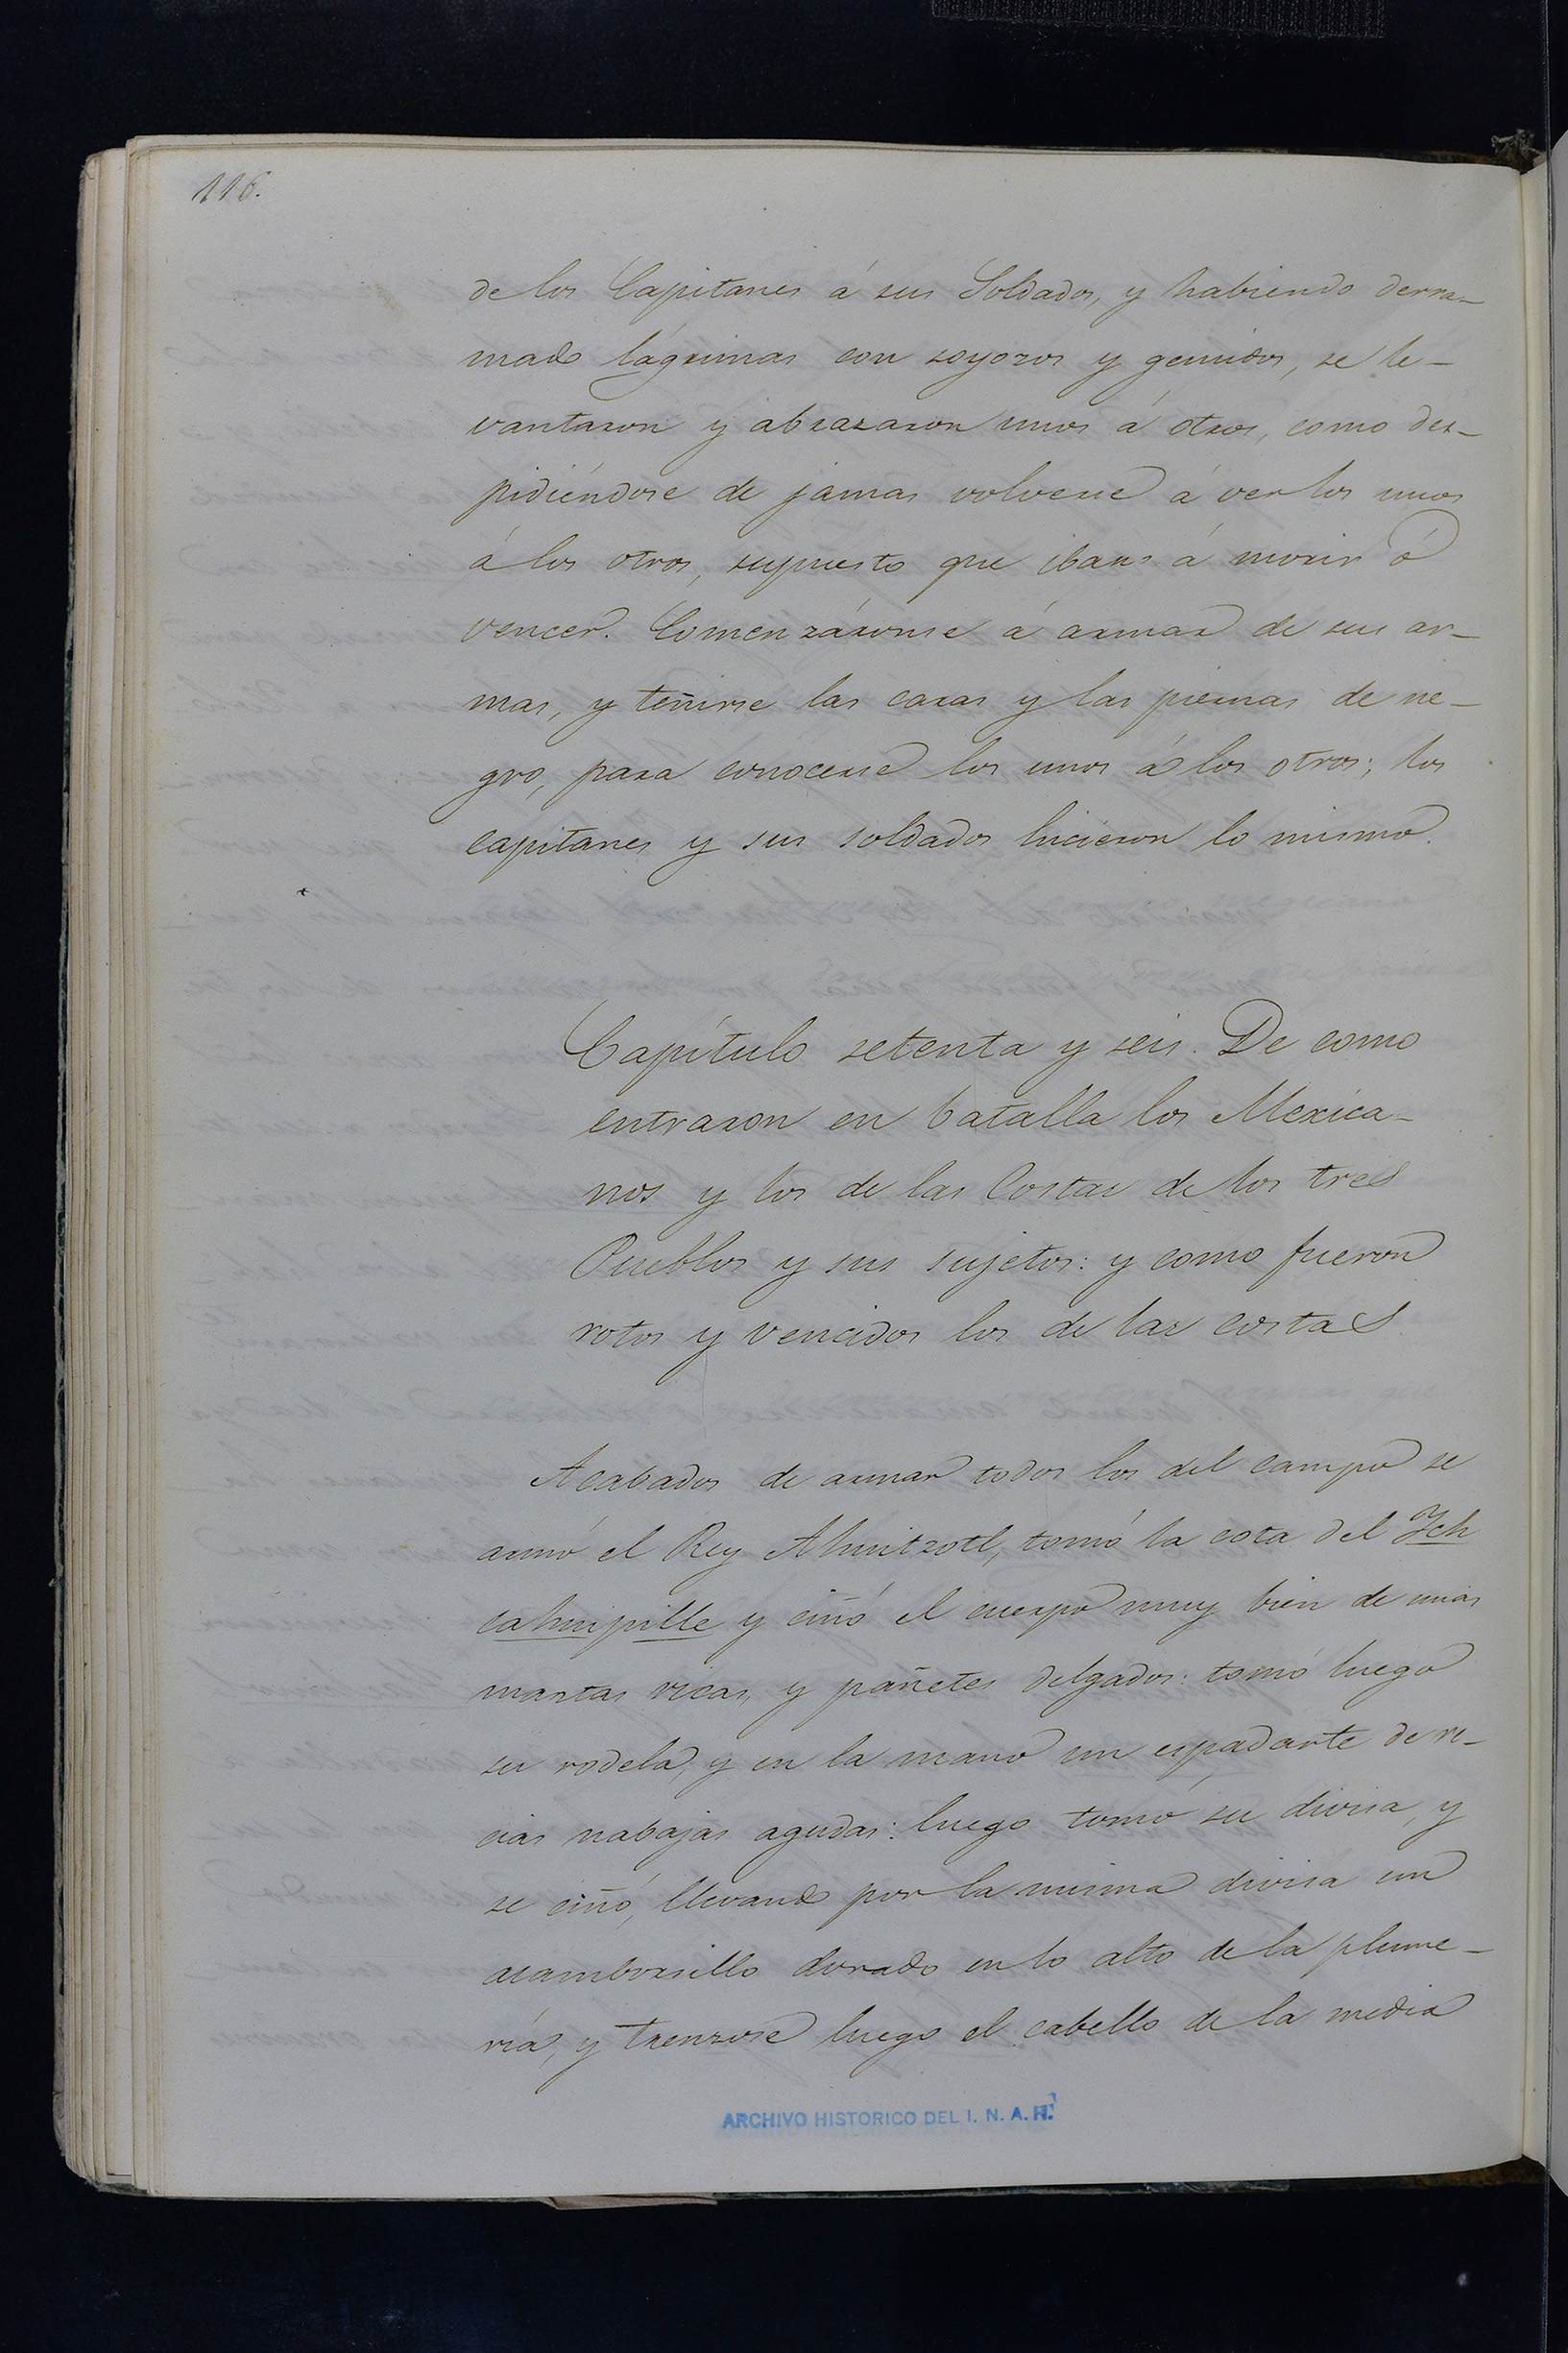 116.
de los Capitanes á sus Soldados, y habiendo derra-
mado lágrimas con soyozos y gemidos, se le-
vantaron y abrazaron unos á otros, como des-
pidiéndose de jamas volverse á ver los unos
á los otros, supuesto que iban á morir ó
vencer. Comenzáronse á armar de sus ar-
mas, y teñirse las caras y las piernas de ne-
gro, para conocerse los unos á los otros; los
capitanes y sus soldados hicieron lo mismo.
Capítulo setenta y seis. De como
entraron en batalla los Mexica-
nos y los de las Costas de los tres
Pueblos y sus sujetos: y como fueron
rotos y vencidos los de las costas
Acabados de armar todos los del campo se
armó el Rey Ahuitzotl, tomó la cota del Ich
cahuipille y ciñó el cuerpo muy bien de unas
mantas ricas, y pañetes delgados: tomó luego
su rodela, y en la mano un espadarte de re-
cias nabajas agudas: luego tomó su divisa, y
se ciñó, llevando por la misma divisa un
atamborsillo dorado en lo alto de la plume-
ría, y trenzose luego el cabello de la media
ARCHIVO HISTORICO DEL I. N. A. H.